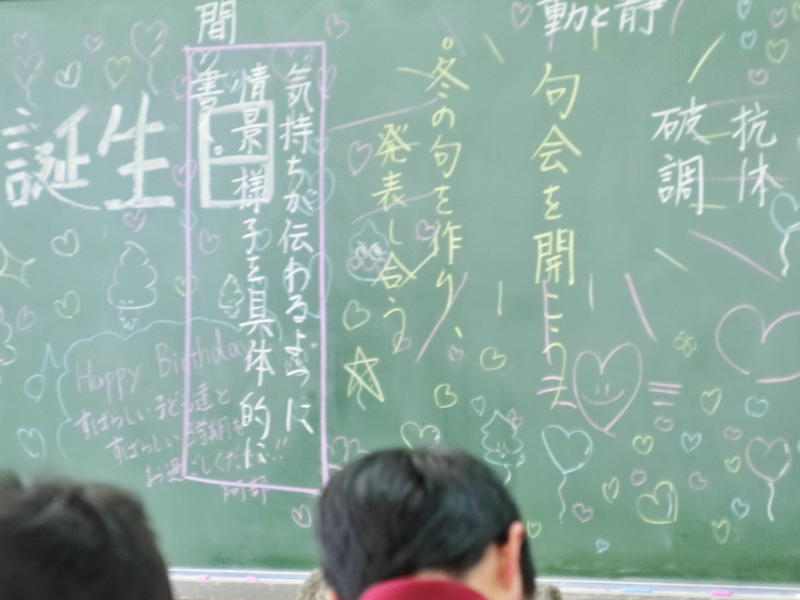 動と静
抗体
破調
句会を開こう
冬の句を作り、
発表し合う
気持ちが伝わるように
情景 様子を具体的に
書く。
間
誕生日
Happy Birthday
すばらしい子ども達と
すばらしい